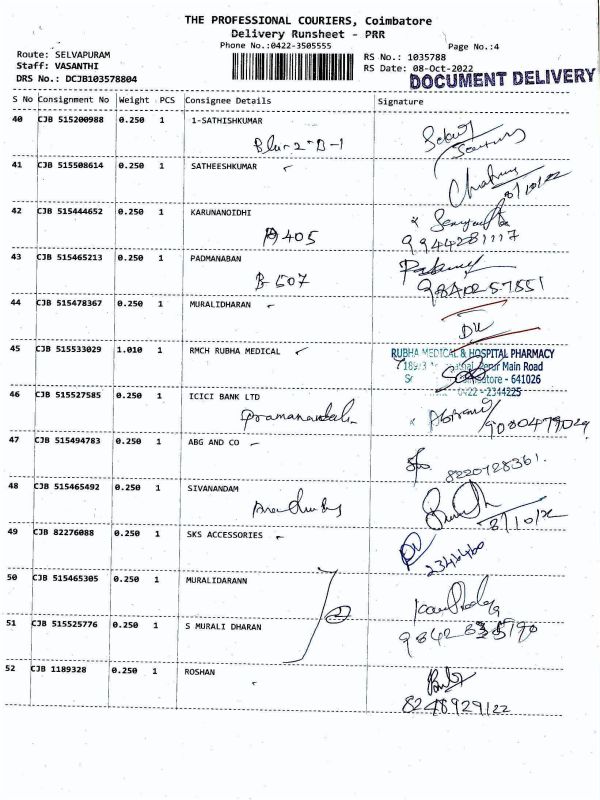 THE PROFESSIONAL COURIERS, Coimbatore
Delivery Runsheet - PRR
Phone No.:0422-3505555
Page No.:4
Route: SELVAPURAM
RS No.: 1035788
Staff: VASANTHI
RS Date: 08-Oct-2022
DRS No.: DCJB103578804
DOCUMENT DELIVERY
S No Consignment No Weight PCS Consignee Details Signature
40 CJB 515200988 0.250 1 1-SATHISHKUMAR
41 CJB 515508614 0.250 1 SATHEESHKUMAR
8/10/22
42 CJB 515444652 0.250 1 KARUNANOIDHI
A 405
9944281117
43 CJB 515465213 0.250 1 PADMANABAN
B-507
44 CJB 515478367 0.250 1 MURALIDHARAN
45 CJB 515533029 1.010 1 RMCH RUBHA MEDICAL
RUBHA MEDICAL & HOSPITAL PHARMACY
Main Road
- 641026
0422 - 2344225
46 CJB 515527585 0.250 1 ICICI BANK LTD
9080479029
47 CJB 515494783 0.250 1 ABG AND CO
8220728361.
48 CJB 515465492 0.250 1 SIVANANDAM
8/10/22
49 CJB 82276088 0.250 1 SKS ACCESSORIES
50 CJB 515465305 0.250 1 MURALIDARANN
2
51 CJB 515525776 0.250 1 S MURALI DHARAN
52 CJB 1189328 0.250 1 ROSHAN
8248929122